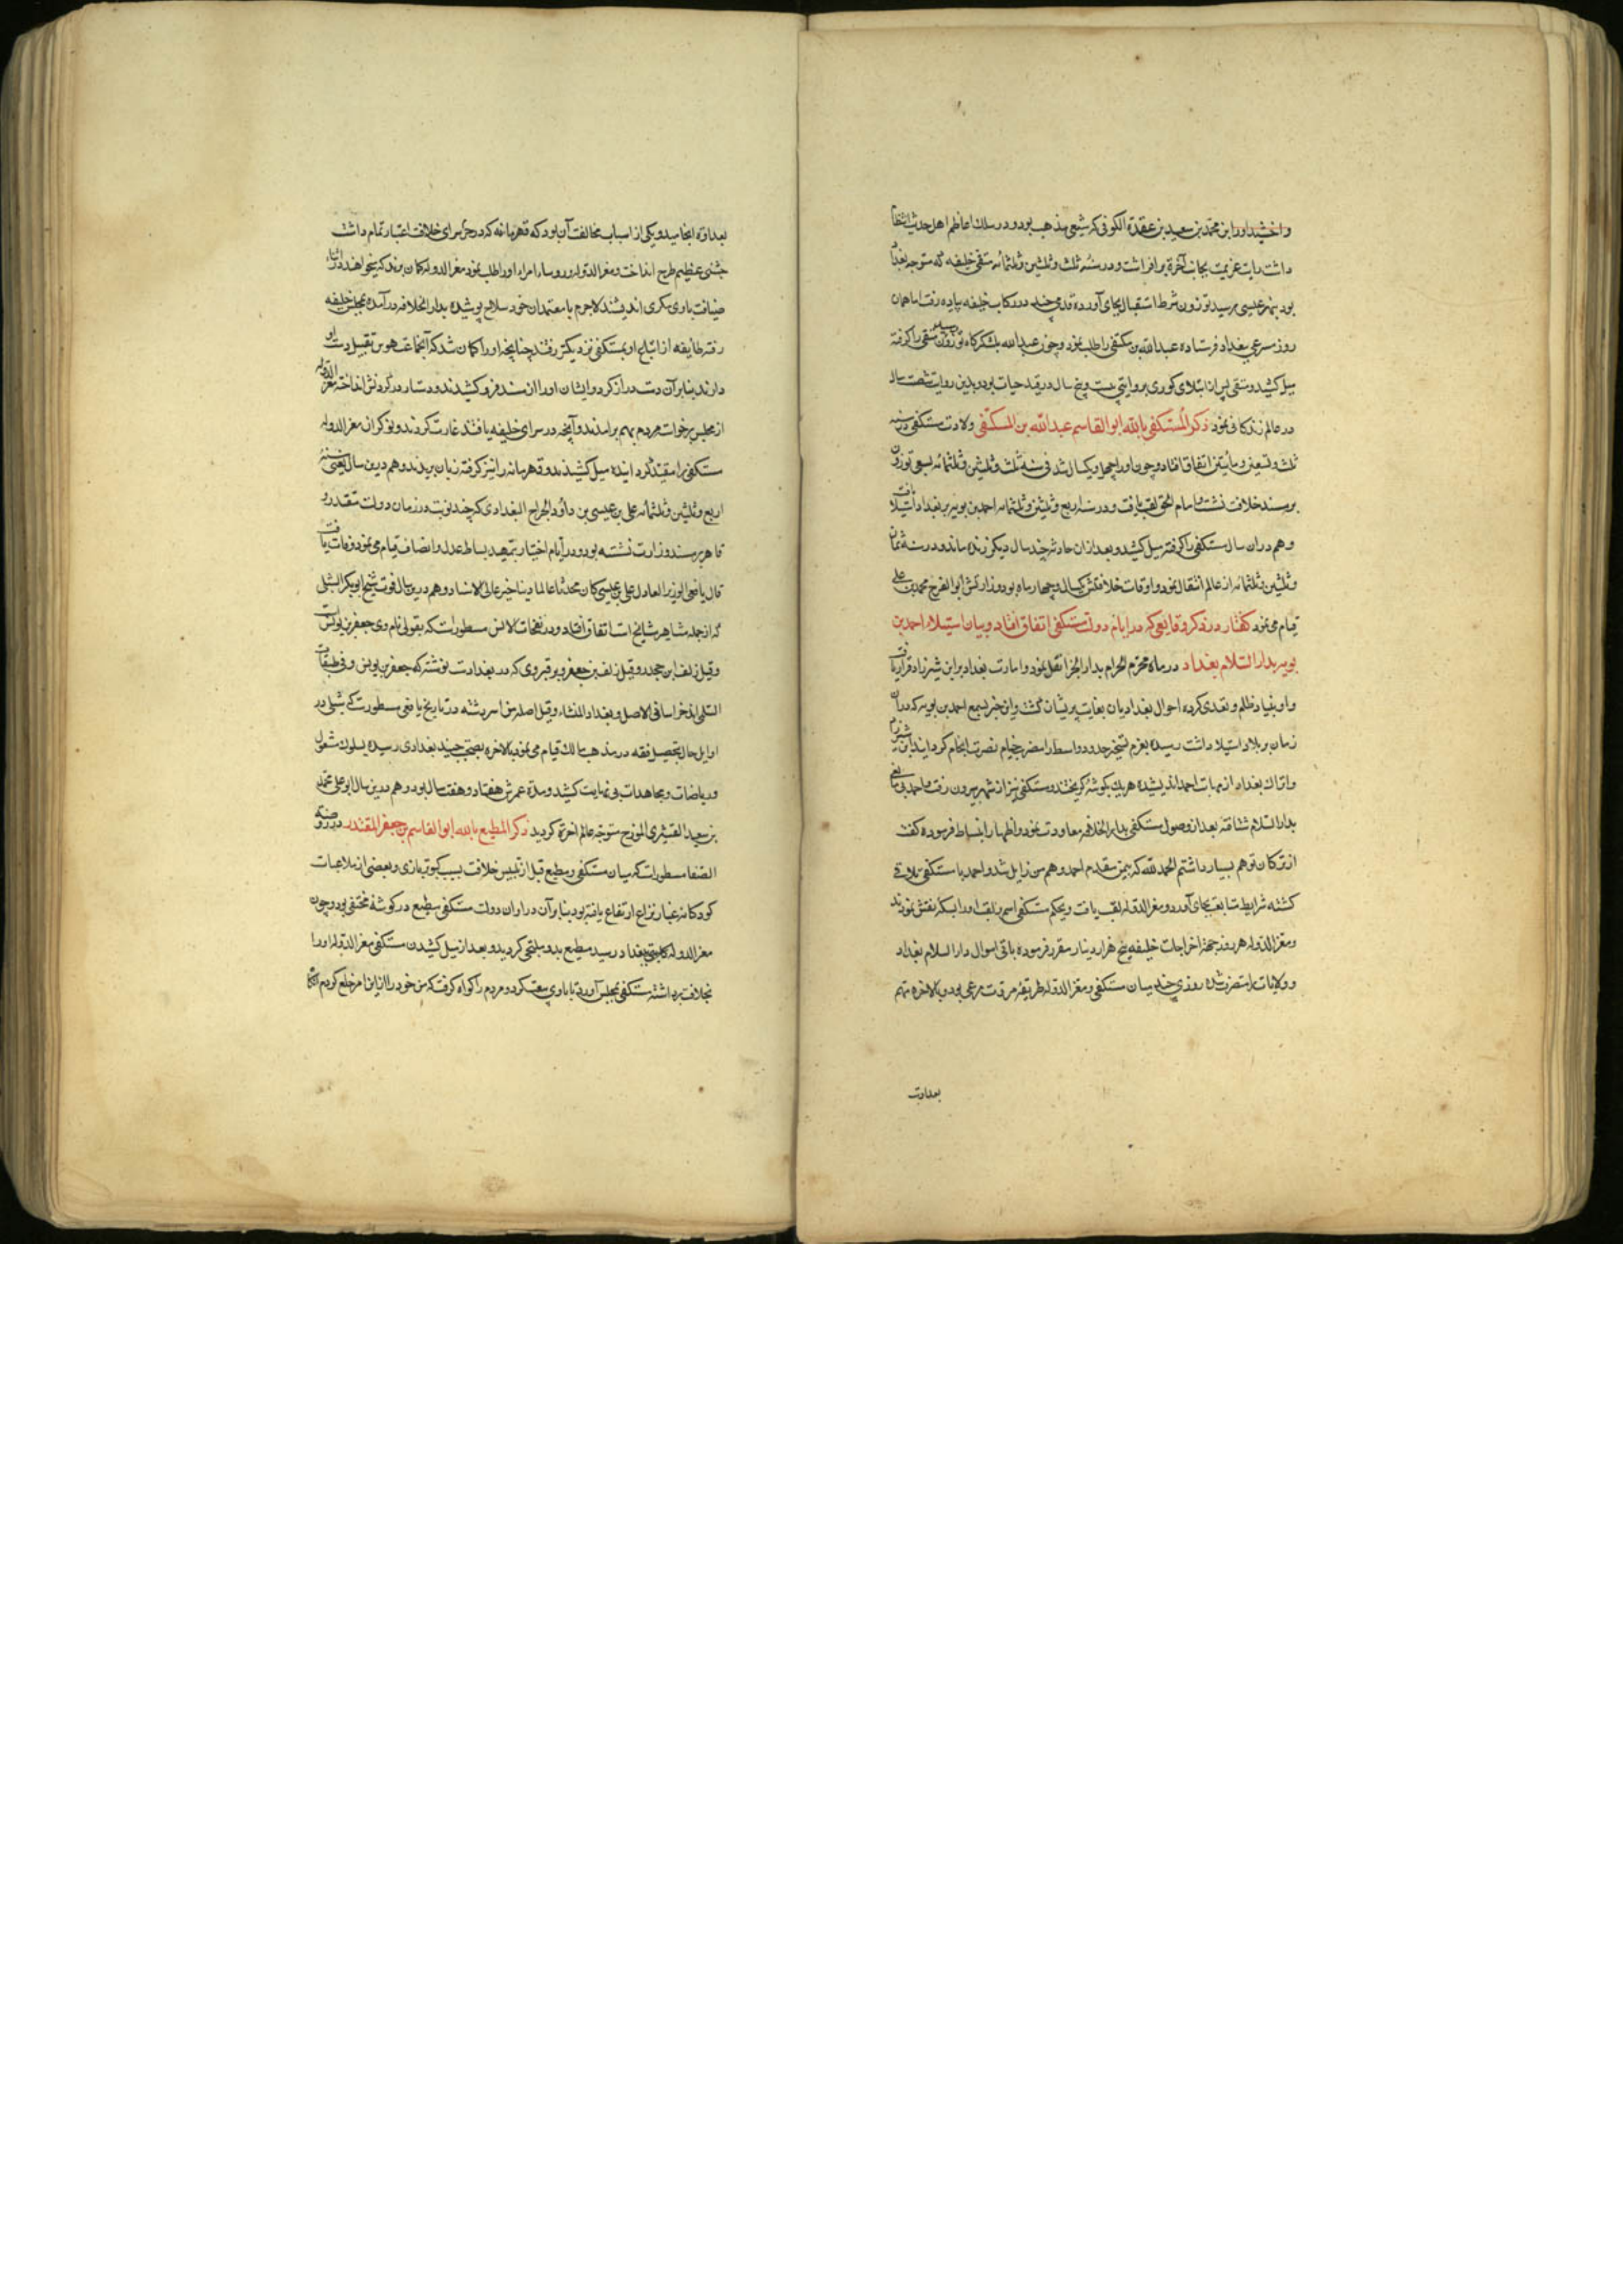 و اخشید او را ابن محمد بن سعید بن عقدة الکوفی که شیعی مذهب بود و در سلک اعاظم اهل حدیث انتظام
داشت رایت عزیمت بجانب آخرة برافراشت و در سنه ثلث و ثلثین و ثلثمائه متقی خلیفه که متوجه بغداد
بود بنهر عیسی رسید توزون شرط استقبال بجای آورده قدمی چند در رکاب خلیفه پیاده رفت اما همان
روز مسرعی ببغداد فرستاده عبدالله بن مکتفی را طلب نمود و چون عبدالله بلشکرگاه توزون رسید متقی را گرفته
میل کشید و متقی پس از ابتلای کوری بروایتی بیست و پنج سال در قید حیات بود و بدین روایت شصت سال
در عالم زندگانی نمود ذکر المستکفی بالله ابوالقاسم عبدالله بن المکتفی ولادت مستکفی در سنه
ثلث و تسعین و مأیتین اتفاق افتاد و چون او را چهل و یکسال شد فی سنه ثلث و ثلثین و ثلثمائه بسعی توزون
بر مسند خلافت نشست و بامام الحق لقب یافت و در سنه اربع و ثلثین و ثلثمائه احمد بن بویه بر بغداد استیلا یافت
و هم در ان سال مستکفی را گرفته میل کشید و بعد از ان حادثه چند سال دیگر زنده ماند و در سنه ثمان
و ثلثین و ثلثمائه از عالم انتقال نمود و اوقات خلافتش یکسال و چهار ماه بود و وزارتش ابوالفرج محمد بن علی
قیام می نمود گفتار در ذکر وقایعی که در ایام دولت مستکفی اتفاق افتاد و بیان استیلاء احمد بن
بویه بدار السلام بغداد در ماه محرم الحرام بدار الجزا نقل نمود و امارت بغداد بر ابن شیرزاد قرار یافت
و او بنیاد ظلم و تعدی کرده احوال بغدادیان بغایت پریشان گشت و این خبر بسمع احمد بن بویه که در ان
زمان بر بلاد استیلا داشت رسیده بعزم تسخیر حدود واسط را مضرب خیام نصرت انجام گردانید ابن شیرزاد
و اتراک بغداد از مهابت احمد اندیشیده هریک بگوشه گریختند و مستکفی نیز از شهر بیرون رفت و احمد بی مانعی
بدار السلام شتافته بعد از وصول مستکفی بدار الخلافه معاودت نمود و اظهار انبساط فرموده گفت
از ترکان توهم بسیار داشتم الحمد لله که بیمن مقدم احمد وهم من زایل شد و احمد با مستکفی ملاقی
گشته شرایط متابعت بجای آورد و معز الدوله لقب یافت و بحکم مستکفی اسم و لقب او را بسکه نقش نمودند
و معز الدوله هر روز جهة اخراجات خلیفه پنج هزار دینار مقرر فرموده باقی اموال دار السلام بغداد
و ولایات را متصرف شد روزی چند میان مستکفی و معز الدوله طریقه مروت مرعی بود و بالاخره مهم
بعداوت
بعداوة انجامید و یکی از اسباب مخالفت آن بود که قهرمانه که در حرم سرای خلافت اعتبار تمام داشت
جشنی عظیم طرح انداخت و معز الدوله و رؤساء امراء او را طلب نمود معز الدوله گمان برد که میخواهند در اثنای
ضیافت با وی مکری اندیشند لاجرم با معتمدان خود سلاح پوشیده بدار الخلافه در آمده بمجلس خلیفه
رفته طایفه از اتباع او بمستکفی نزدیکتر رفتند چنانچه او را گمان شد که آنجماعت هوس تقبیل دست او
دارند بنابر آن دست دراز کرد و ایشان او را از مسند فرو کشیدند و دستار در گردنش انداخته معز الدوله
از مجلس برخواست و مردم بهم برامدند و آنچه در سرای خلیفه یافتند غارت کردند و نوکران معز الدوله
مستکفی را مقید گردانیده میل کشیدند و قهرمانه را نیز گرفته زبان بریدند و هم درین سال یعنی سنه
اربع و ثلثین و ثلثمائه علی بن عیسی بن داود الجراح البغدادی که چند نوبت در زمان دولت مقتدر و
قاهر بر مسند وزارت نشسته بود و در ایام اختیار بتمهید بساط عدل و انصاف قیام می نمود وفات یافت
قال یافعی الوزیر العادل علی بن عیسی کان محدثا عالما دینا خیر عالی الاسناد و هم درین سال فوت شیخ ابوبکر الشبلی
که از جمله مشاهیر مشایخ است اتفاق افتاد و در نفحات الانس مسطورات که بقولی نام وی جعفر بن یونس است
و قیل دلف بن جحدر و قیل دلف بن جعفر و بر قبر وی که در بغداد است نوشته که جعفر بن یونس و فی طبقات
السلمی انه خراسانی الاصل و بغداد المنشاء و قیل اصله من اسروشنه در تاریخ یافعی مسطورست که شبلی در
اوایل حال بتحصیل فقه در مذهب مالک قیام می نمود بالاخره بصحبت جنید بغدادی رسیده بسلوک مشغول
و ریاضات و مجاهدات بی نهایت کشید و مدة عمرش هفتاد و هفت سال بود و هم درین سال ابوعلی محمد
بن سعید القشیری المورخ متوجه عالم اخرة گردید ذکر المطیع بالله ابوالقاسم بن جعفر المقتدر در روضة
الصفا مسطورات که میان مستکفی و مطیع قبل از تلبس خلافت بسبب کبوتربازی و بعضی از ملاعبات
کودکانه غبار نزاع ارتفاع یافته بود بنابر آن در اوان دولت مستکفی مطیع در گوشه مختفی بود و چون
معز الدوله ببغداد رسید مطیع بدو ملتجی گردید و بعد از میل کشیدن مستکفی معز الدوله او را
بخلافت برداشته مستکفی بمجلس آورد تا با وی بیعت کرد و مردم را گواه گرفت که من خود را از این امر خلع کردم